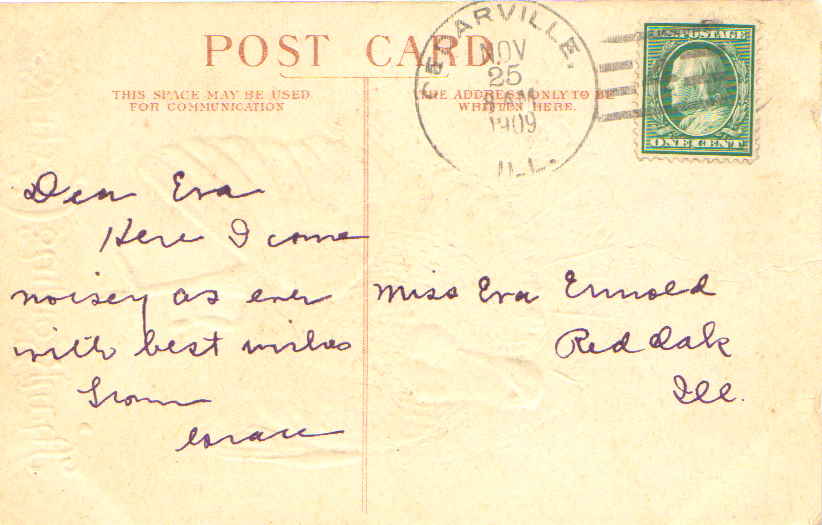 POST CARD.
THIS SPACE MAY BE USED
FOR COMMUNICATION
THE ADDRESS ONLY TO BE
WRITTEN HERE.
CEDARVILLE,
NOV
25
AM
1909
ILL.
U.S. POSTAGE
ONE CENT
Dear Eva
Here I come
noisey as ever
with best wishes
From
Grace
Miss Eva Ermold
Red Oak
Ill.